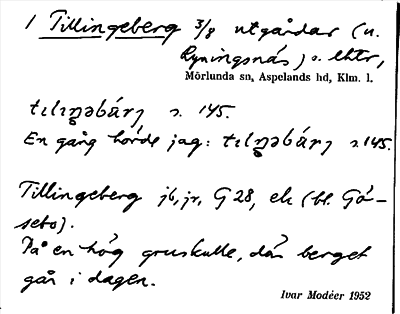 1 Tillingeberg 3/8 utgårdar (u.
Ryningsnäs) o. ehtr,
Mörlunda sn, Aspelands hd, Klm. l.
tɩlɩŋəbárj s. 145.
En gång hörde jag: tɩlɩŋəbárj s. 145.
Tillingeberg jb, jr, G 28, ek (bl. Gö-
sebo).
På en hög gruskulle, där berget
går i dagen.
Ivar Modéer 1952